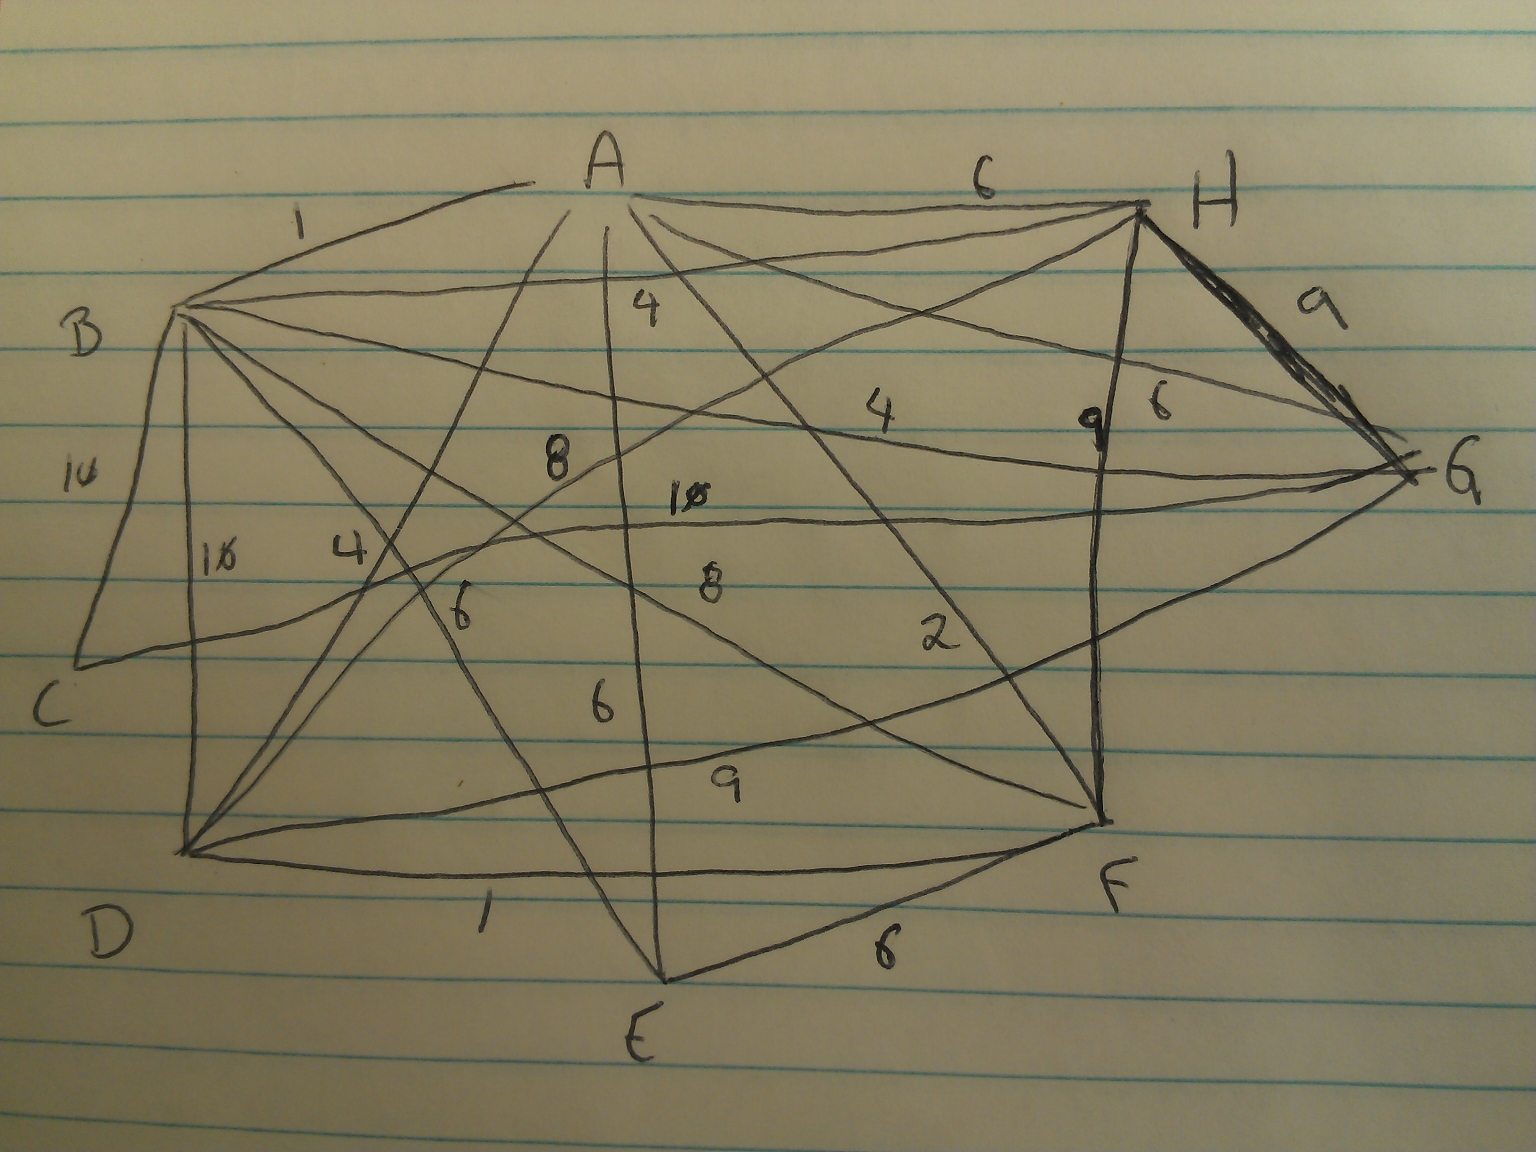 A
6
H
1
B
4
9
4
9
6
8
10
10
G
10
4
6
8
2
C
6
9
D
1
6
F
E